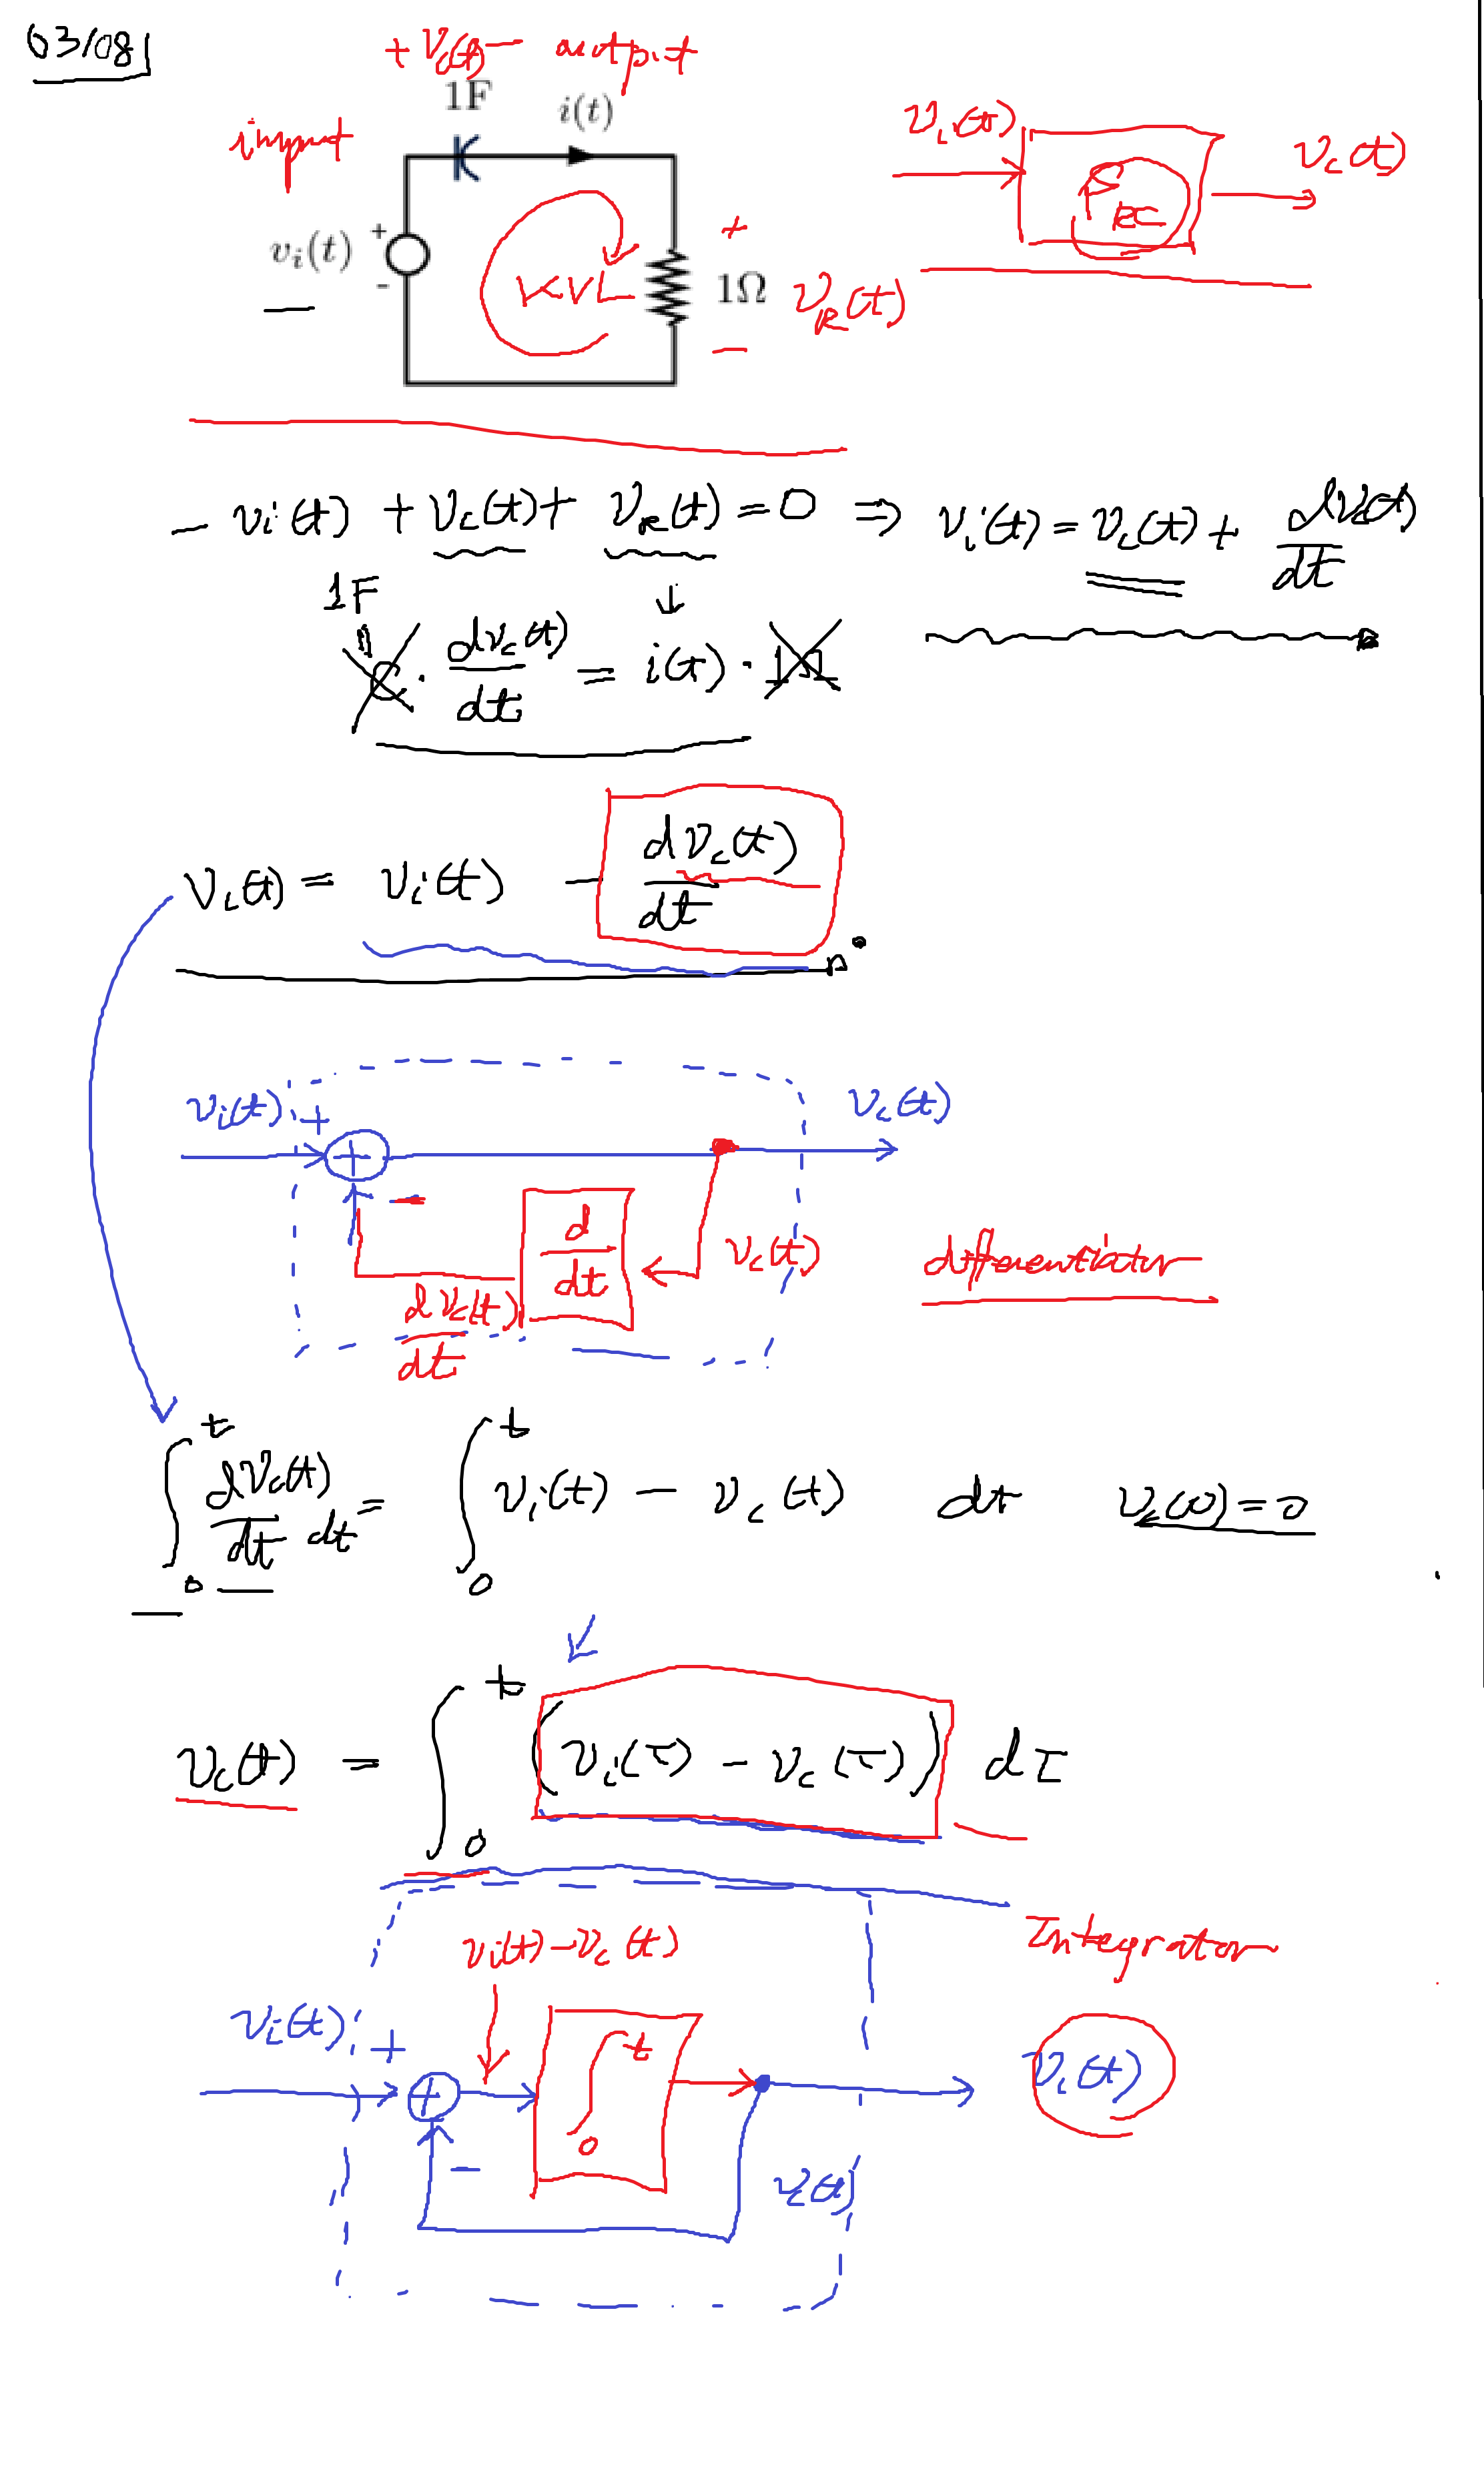 03/08
+ Vc(t) - output
1F
i(t)
input
vi(t)
+
-
KVL
+
1Ω
VR(t)
-
Vi(t)
SRC
Vc(t)
- vi(t) + Vc(t) + VR(t) = 0 ⇒ Vi(t) = Vc(t) + dVc(t)/dt
1F
C · dvc(t)/dt = i(t) · 1Ω
Vc(t) = Vi(t) - dVc(t)/dt
Vi(t) +
+
-
Vc(t)
d/dt
Vc(t)
dVc(t)/dt
differentiator
∫₀ᵗ dVc(t)/dt dt = ∫₀ᵗ Vi(t) - Vc(t) dt Vc(0) = 0
Vc(t) = ∫₀ᵗ (Vi(τ) - Vc(τ)) dτ
Integrator
Vi(t) - Vc(t)
Vi(t) +
+
-
∫₀ᵗ
Vc(t)
Vc(t)